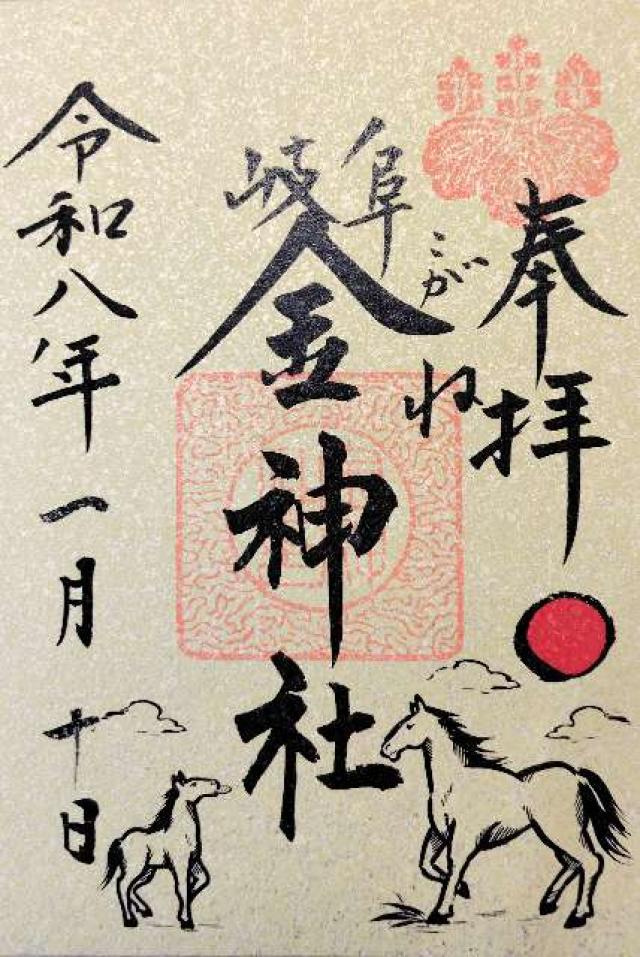 奉拝
こがね
岐阜
金神社
令和八年一月十日